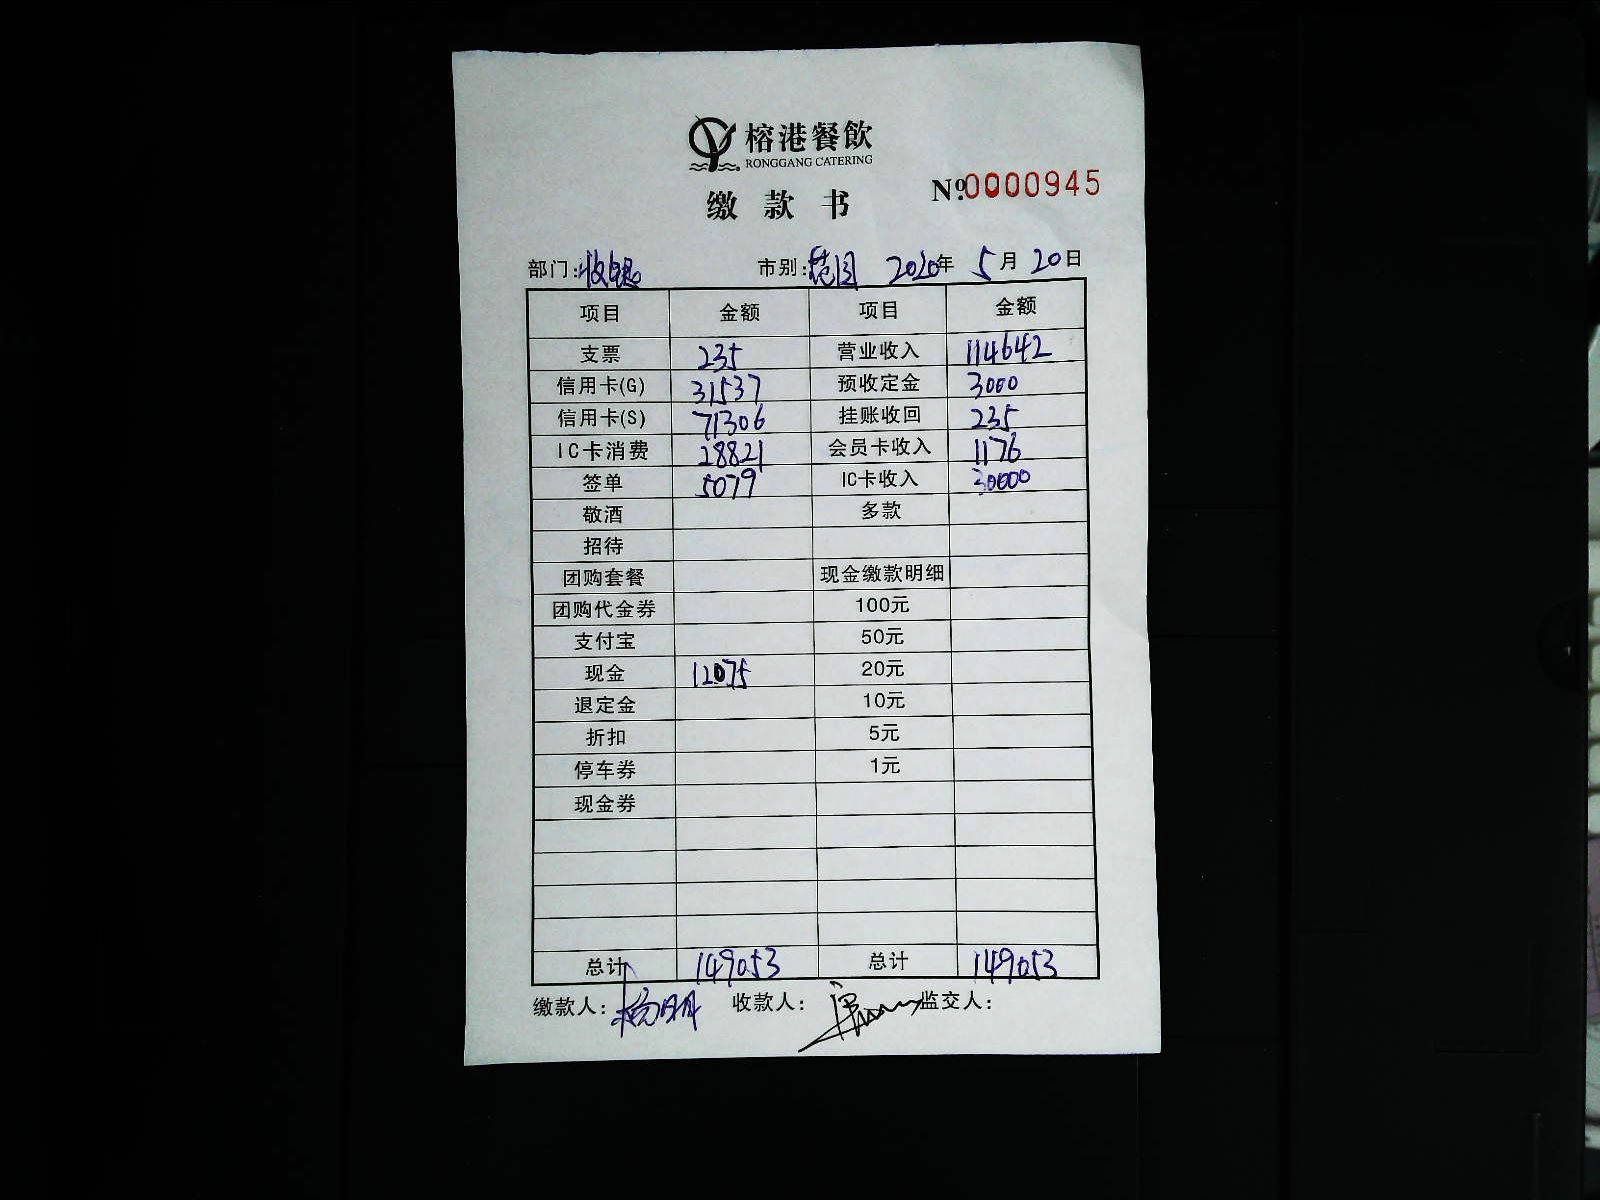 榕港餐飲
RONGGANG CATERING
缴款书
No.0000945
部门:收银 市别:范围 2020年 5月 20日
项目 金额 项目 金额
支票 235 营业收入 114642
信用卡(G) 31537 预收定金 3000
信用卡(S) 71306 挂账收回 235
IC卡消费 28821 会员卡收入 1176
签单 5079 IC卡收入 30000
敬酒 多款
招待
团购套餐 现金缴款明细
团购代金券 100元
支付宝 50元
现金 12075 20元
退定金 10元
折扣 5元
停车券 1元
现金券
总计 149053 总计 149053
缴款人: 收款人: 监交人: